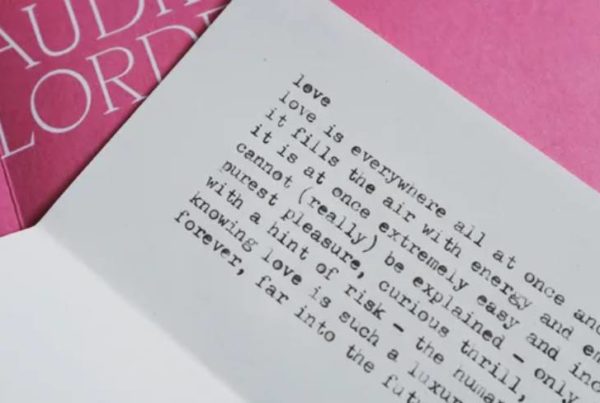 AUD
LORD
love
love is everywhere all at once and
it fills the air with energy and em
it is at once extremely easy and inc
cannot (really) be explained – only
purest pleasure, curious thrill,
with a hint of risk – the human
knowing love is such a luxur
forever, far into the futu